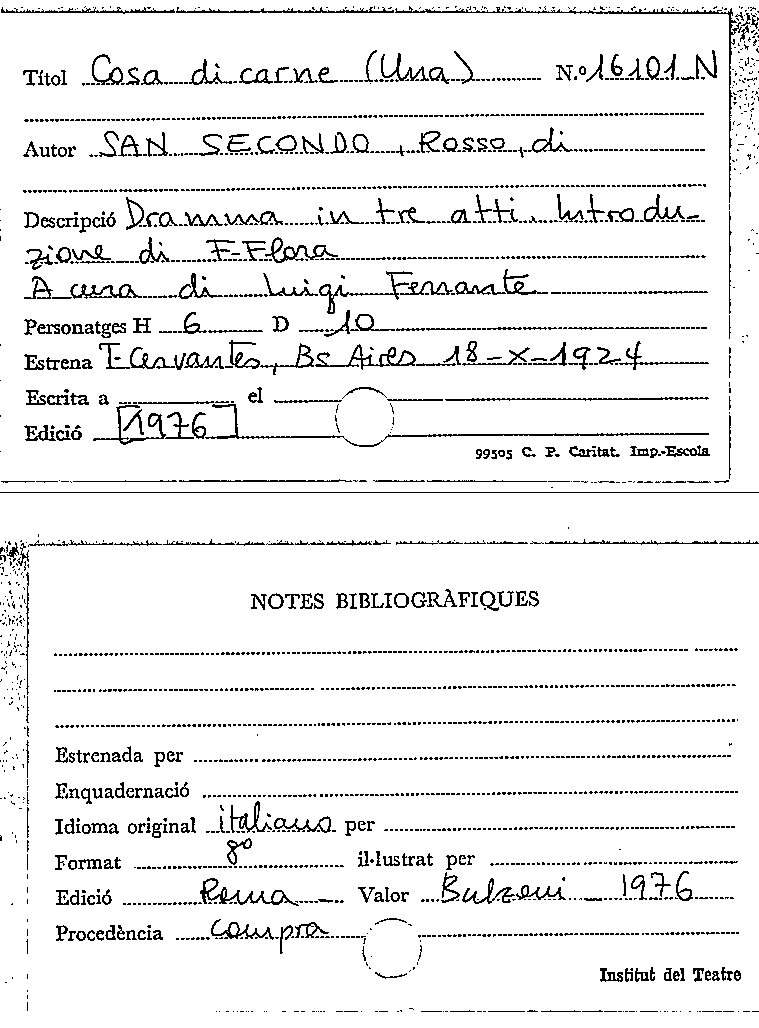 Títol Cosa di carne (Una) N.º 16101 N
Autor SAN SECONDO, Rosso, di
Descripció Dramma in tre atti. Introdu-
zione di F. Flora
A cura di Luigi Ferrante
Personatges H 6 D 10
Estrena T. Cervantes, Bs Aires 18-X-1924
Escrita a el
Edició [1976]
99505 C. P. Caritat. Imp.-Escola
NOTES BIBLIOGRÀFIQUES
Estrenada per
Enquadernació
Idioma original italiano per
Format 8º il·lustrat per
Edició Roma Valor Bulzoni 1976
Procedència compra
Institut del Teatre